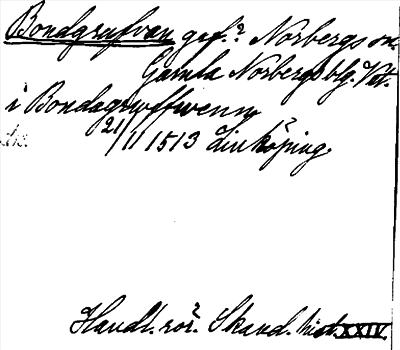 Bondgrufvan grf.? Norbergs sn.
Gamla Norbergsblg. Vst.
i Bondagruffwenn
21/11 1513 Linköping.
Handl. rör. Skand. hist. XXIV.